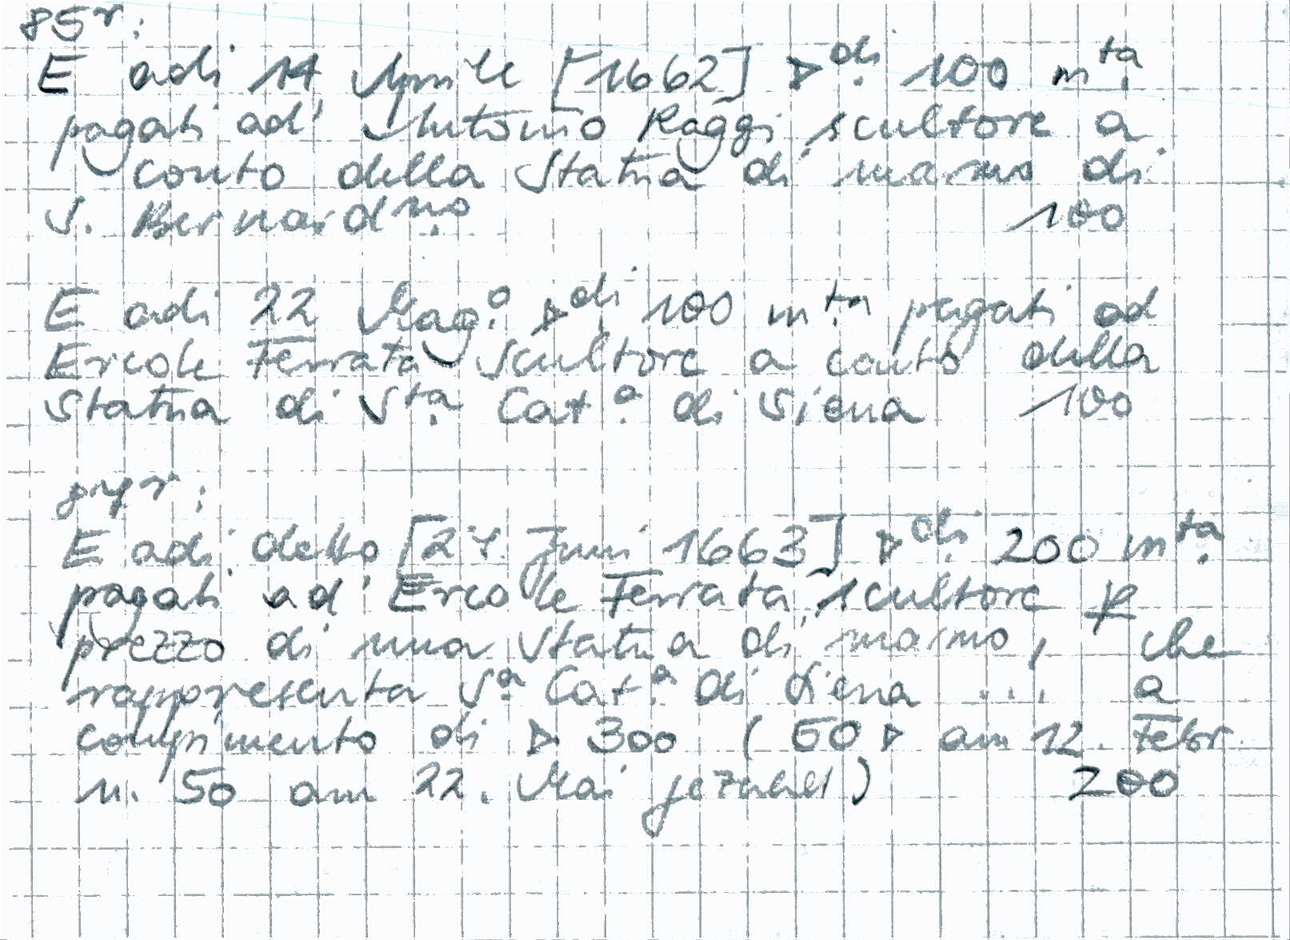 85r:
E adi 14 Aprile [1662] ▷di 100 mta
pagati ad' Antonio Raggi scultore a
conto della Statua di marmo di
S. Bernardno 100
E adi 22 Mago ▷di 100 mta pagati ad
Ercole Ferrata scultore a conto della
statua di Sta Cata di Siena 100
E adi detto [27. Juni 1663] ▷di 200 mta
pagati ad' Ercole Ferrata scultore p
prezzo di una statua di marmo, che
rappresenta Sa Cata di Siena ... a
compimento di ▷ 300 (50 ▷ am 12. Febr.
u. 50 am 22. Mai gezahlt) 200